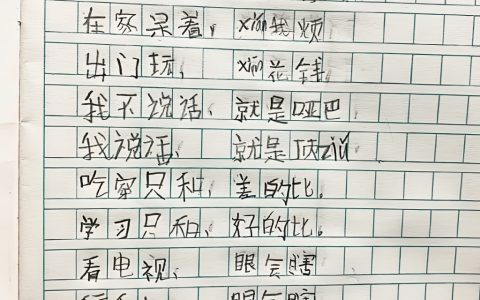 在家呆着，xián我烦
出门玩，xián花钱
我不说话，就是哑巴
我说话，就是顶zuǐ
吃穿只和，差的比。
学习只和，好的比。
看电视，眼会瞎
眼会瞎